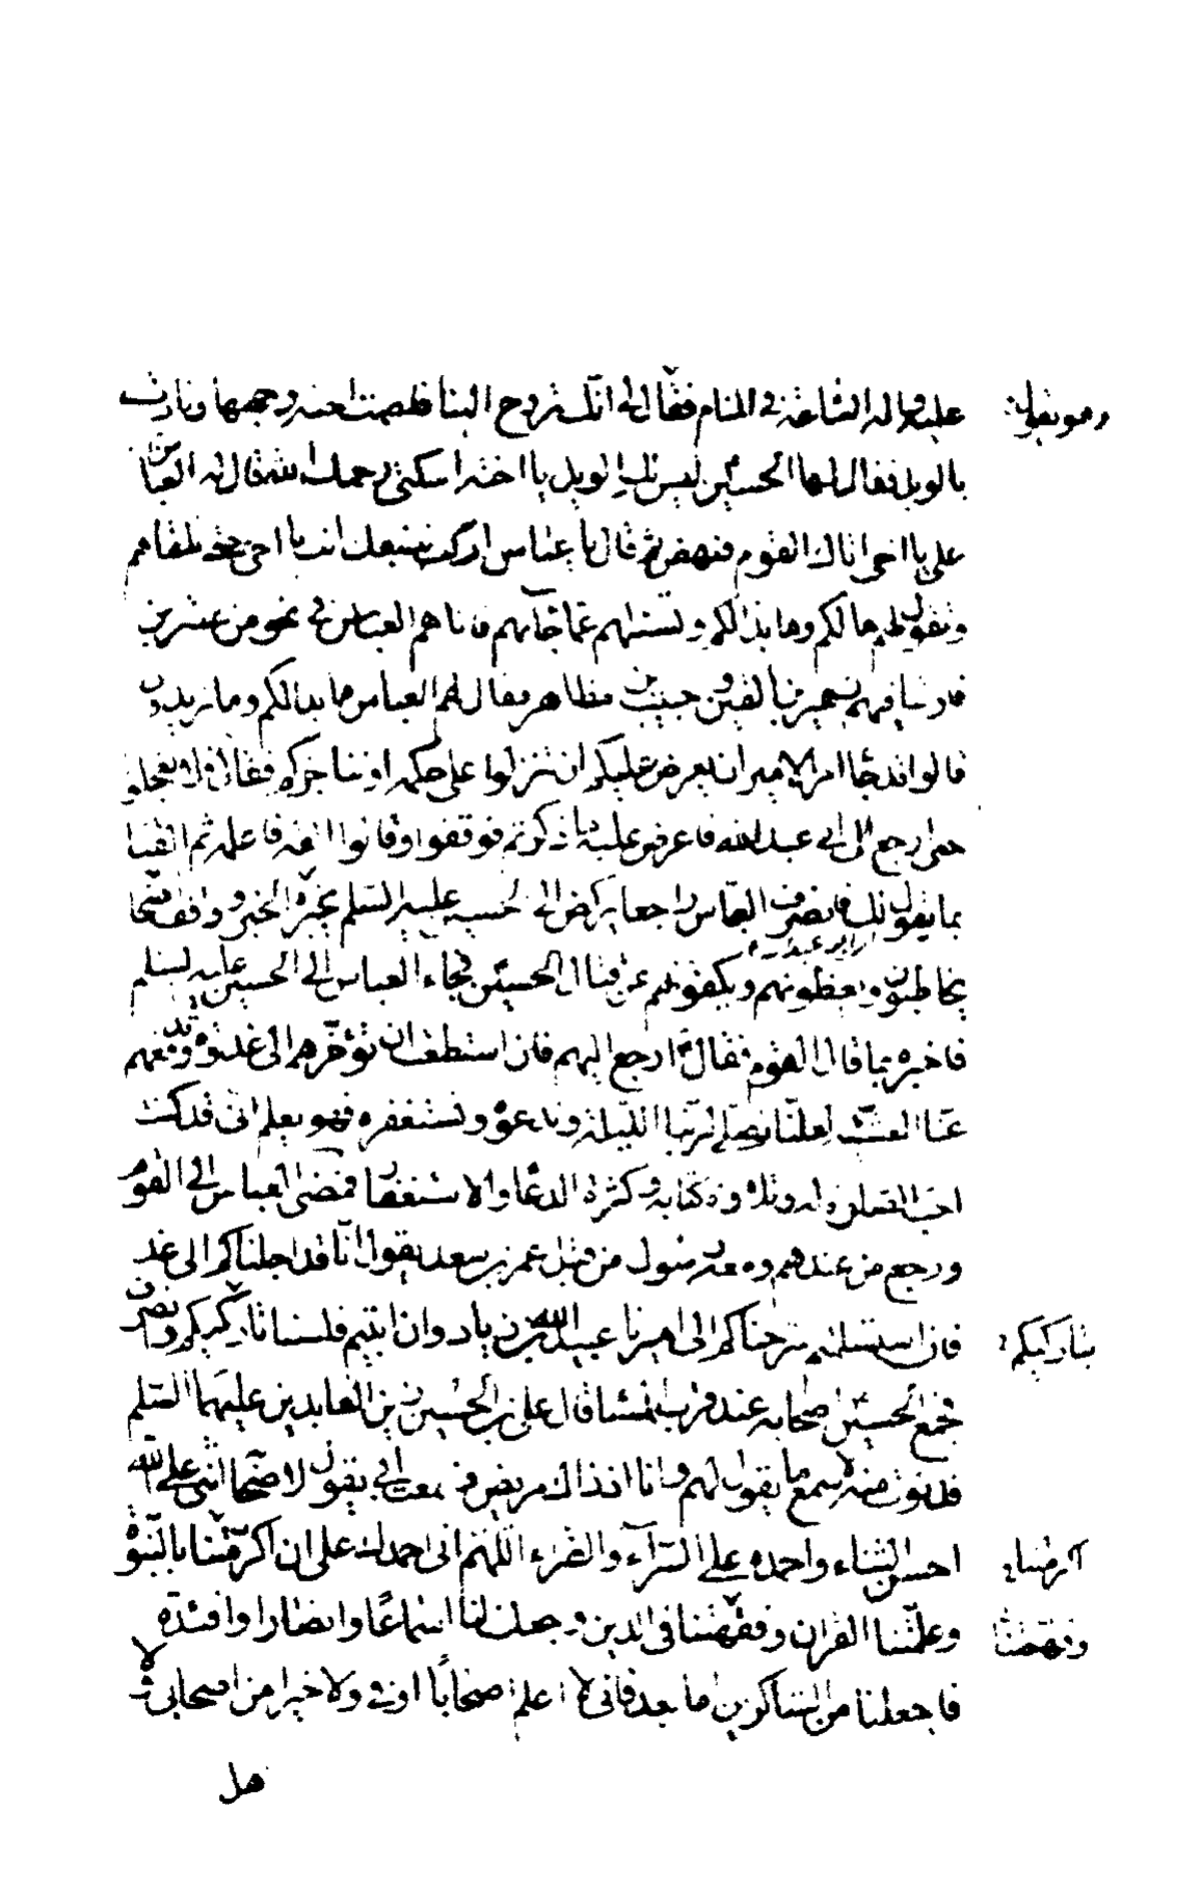 عليه واله الساعة في المنام فقال لي انّك تروح الينا فلطمت اخته وجهها ونادت
وهو يقول
بالويل فقال لها الحسين ليس لك الويل يا اخته اسكتي رحمك الله فقال له العباس بن
علي يا اخي اتاك القوم فنهض ثم قال يا عباس اركب بنفسك انت يا اخي حتى تلقاهم
وتقول لهم ما لكم وما بدا لكم وتسئلهم عمّا جآء بهم فاتاهم العباس في نحو من عشرين
فارسا فيهم زهير بن القين و حبيب بن مظاهر فقال لهم العباس ما بدا لكم وما تريدون
قالوا قد جاء امر الامير ان نعرض عليكم ان تنزلوا على حكمه او نناجزكم فقال فلا تعجلوا
حتى ارجع الى ابي عبد الله فاعرض عليه ما ذكرتم فوقفوا وقالوا القه فاعلمه ثم القنا
بما يقول لك فانصرف العباس راجعا يركض الى الحسين عليه السلم يخبره الخبر و وقف اصحابه
يخاطبون القوم ويعظونهم ويكفونهم عن قتال الحسين فجاء العباس الى الحسين عليه السلم
فاخبره بما قال القوم فقال ارجع اليهم فان استطعت ان تؤخّرهم الى غدوة وتدفعهم
عنّا العشيّة لعلّنا نصلّي لربّنا الليلة وندعوه ونستغفره فهو يعلم انّي قد كنت
احبّ الصلوة له وتلاوة كتابه و كثرة الدعاء والاستغفار فمضى العباس الى القوم
ورجع من عندهم ومعه رسول من قبل عمر بن سعد يقول انّا قد اجلناكم الى غد
فان استسلمتم سرحناكم الى اميرنا عبيد الله بن زياد وان ابيتم فلسنا تاركيكم وانصرف
بتاركيكم
فجمع الحسين اصحابه عند قرب المساء قال علي بن الحسين زين العابدين عليهما السلم
فدنوت منه لاسمع ما يقول لهم وانا اذ ذاك مريض فسمعت ابي يقول لاصحابه اثني على الله
احسن الثناء واحمده على السرآء والضرآء اللهم اني احمدك على ان اكرمتنا بالنبوّة
اكرمتنا
وعلّمتنا القران وفقّهتنا في الدين وجعلت لنا اسماعًا وابصارا وافئدة
وفهمتنا
فاجعلنا من الشاكرين اما بعد فاني لا اعلم اصحابًا اوفى ولا خيرا من اصحابي ولا
هل